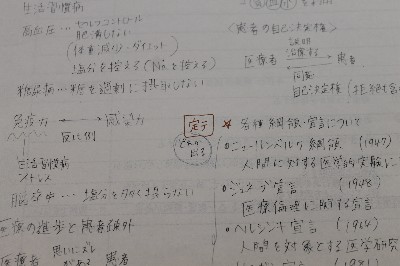 生活習慣病
高血圧… セルフコントロール
肥満しない
(体重減少・ダイエット)
塩分を控える(Naを控える)
糖尿病…糖を過剰に摂取しない
免疫力 ⟷ 感染力
反比例
生活習慣病
ストレス
脳卒中… 塩分を多く摂らない
医療の進歩と患者疎外
医療者 思いにズレがある 患者
〈患者の自己決定権〉
医療者 説明 患者
同意
自己決定権(拒絶
定テ
これが出る
☆ 各種綱領・宣言について
○ニュールンベルク綱領 (1947)
人間に対する医学的実験に
○ジュネーブ宣言 (1948)
医療倫理に関する宣言
○ヘルシンキ宣言 (1964)
人間を対象とする医学研究
宣言 (1981)